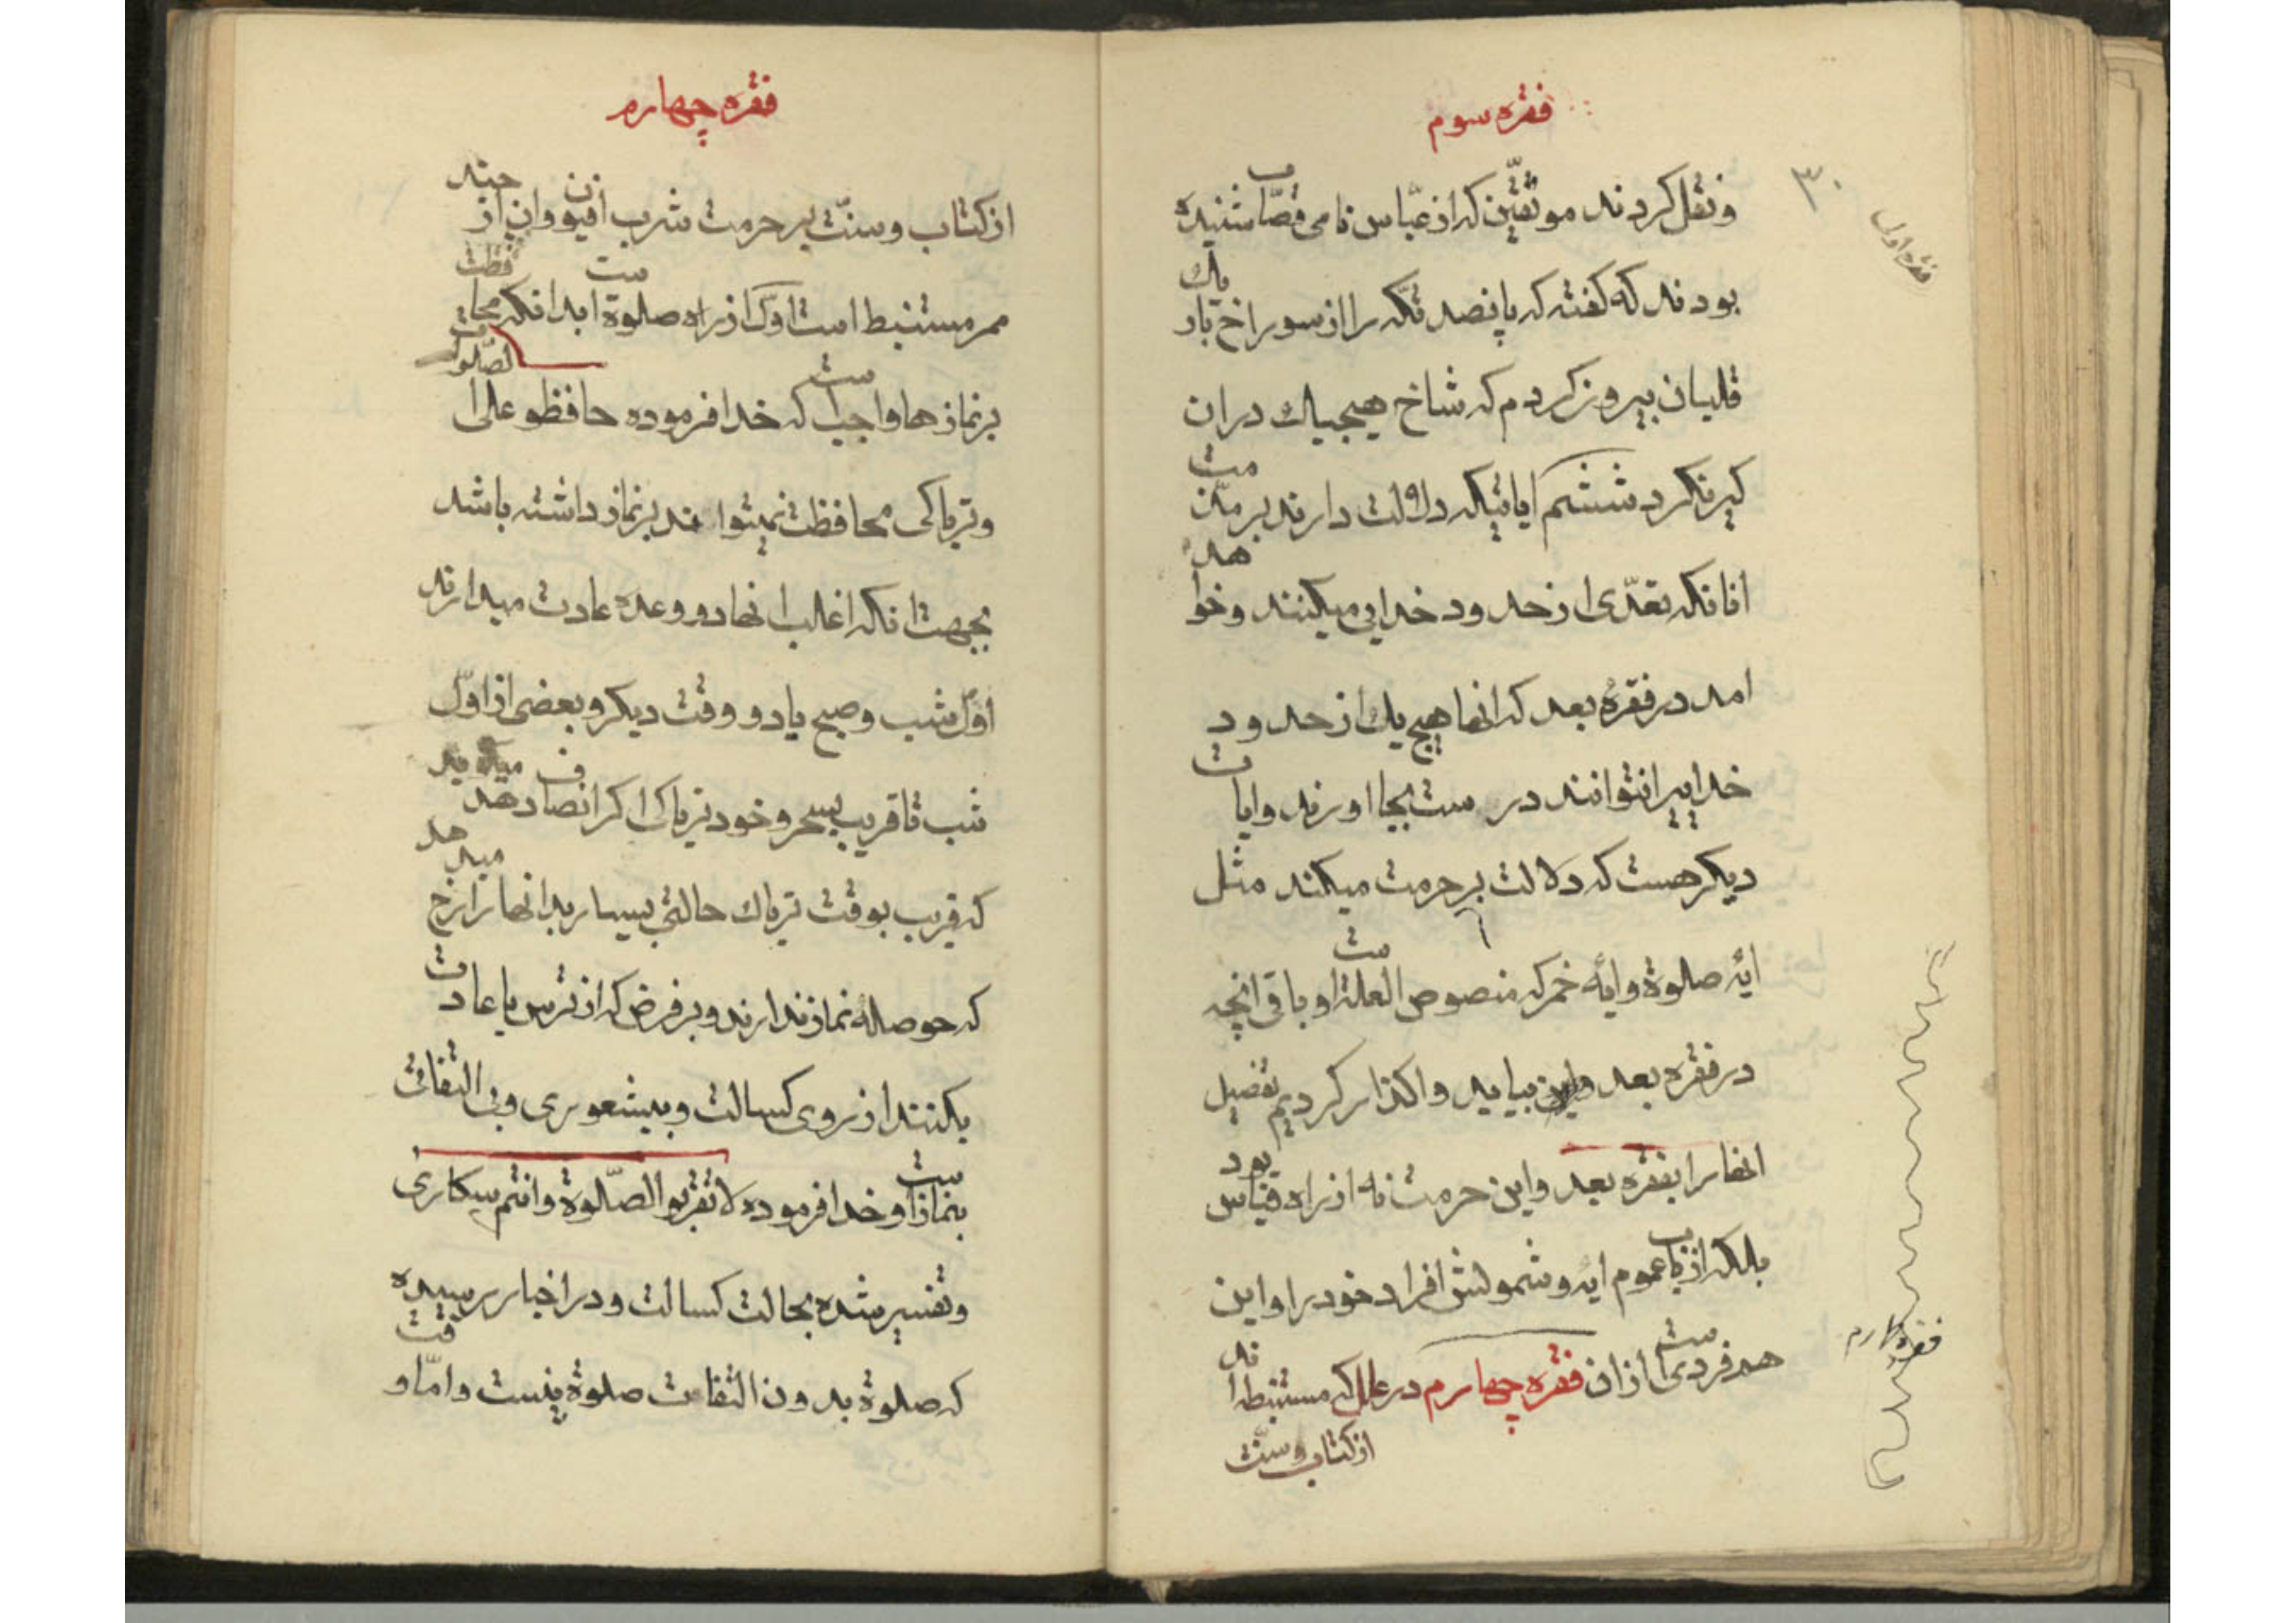 فقره سوم
۳۰
فقره اول
و نقل کردند موثقین که از عبّاس نامی قصّاب شنیده
بودند که گفته که پانصد تکه را از سوراخ باریک
قلیان بیرون کردم که شاخ هیچیک در ان
کیر نکرد ششم ایاتیکه دلالت دارند بر مذمت
انانکه تعدّی از حدود خدایی میکنند و خواهد
امد در فقرهٔ بعد که انها هیچ یک از حدود
خدایرا نتوانند درست بجا اورند و ایات
دیکر هست که دلالت بر حرمت میکند مثل
ایهٔ صلوة و ایهٔ خمر که منصوص العلة است و باقی انچه
در فقره بعد بیاید واکذار کردیم تفصیل
انها را بفقره بعد و این حرمت نه از راه قیاس بود
بلکه از باب عموم ایه و شمولش افراد خود را و این
هم فردیست از ان فقره چهارم در عللی که مستنبطه اند
از کتاب و سنّت
فقره چهارم
فقره چهارم
از کتاب و سنّت بر حرمت شرب افیون و ان از چند
ممر مستنبط است اوّل از راه صلوة است بدانکه محافظت
بر نماز ها واجبست که خدا فرموده حافظو علی الصّلوات
و تریاکی محافظت نمیتواند بر نماز داشته باشد
بجهت انکه اغلب انها دو وعده عادت میدارند
اوّل شب و صبح یا دو وقت دیکر و بعضی از اوّل
شب تا قریب بسحر و خود تریاکی اکر انصاف دهد میداند
که قریب بوقت تریاک حالتی بسیار بد انها را رخ میدهد
که حوصلهٔ نماز ندارند و بر فرض که از ترس یا عادت
بکنند از روی کسالت و بیشعوری و بی التفاتی
بنماز است و خدا فرموده لا تقربو الصّلوة و انتم سکاری
و تفسیر شده بحالت کسالت و در اخبار رسیده
که صلوة بدون التفات صلوة نیست و امّا وقت